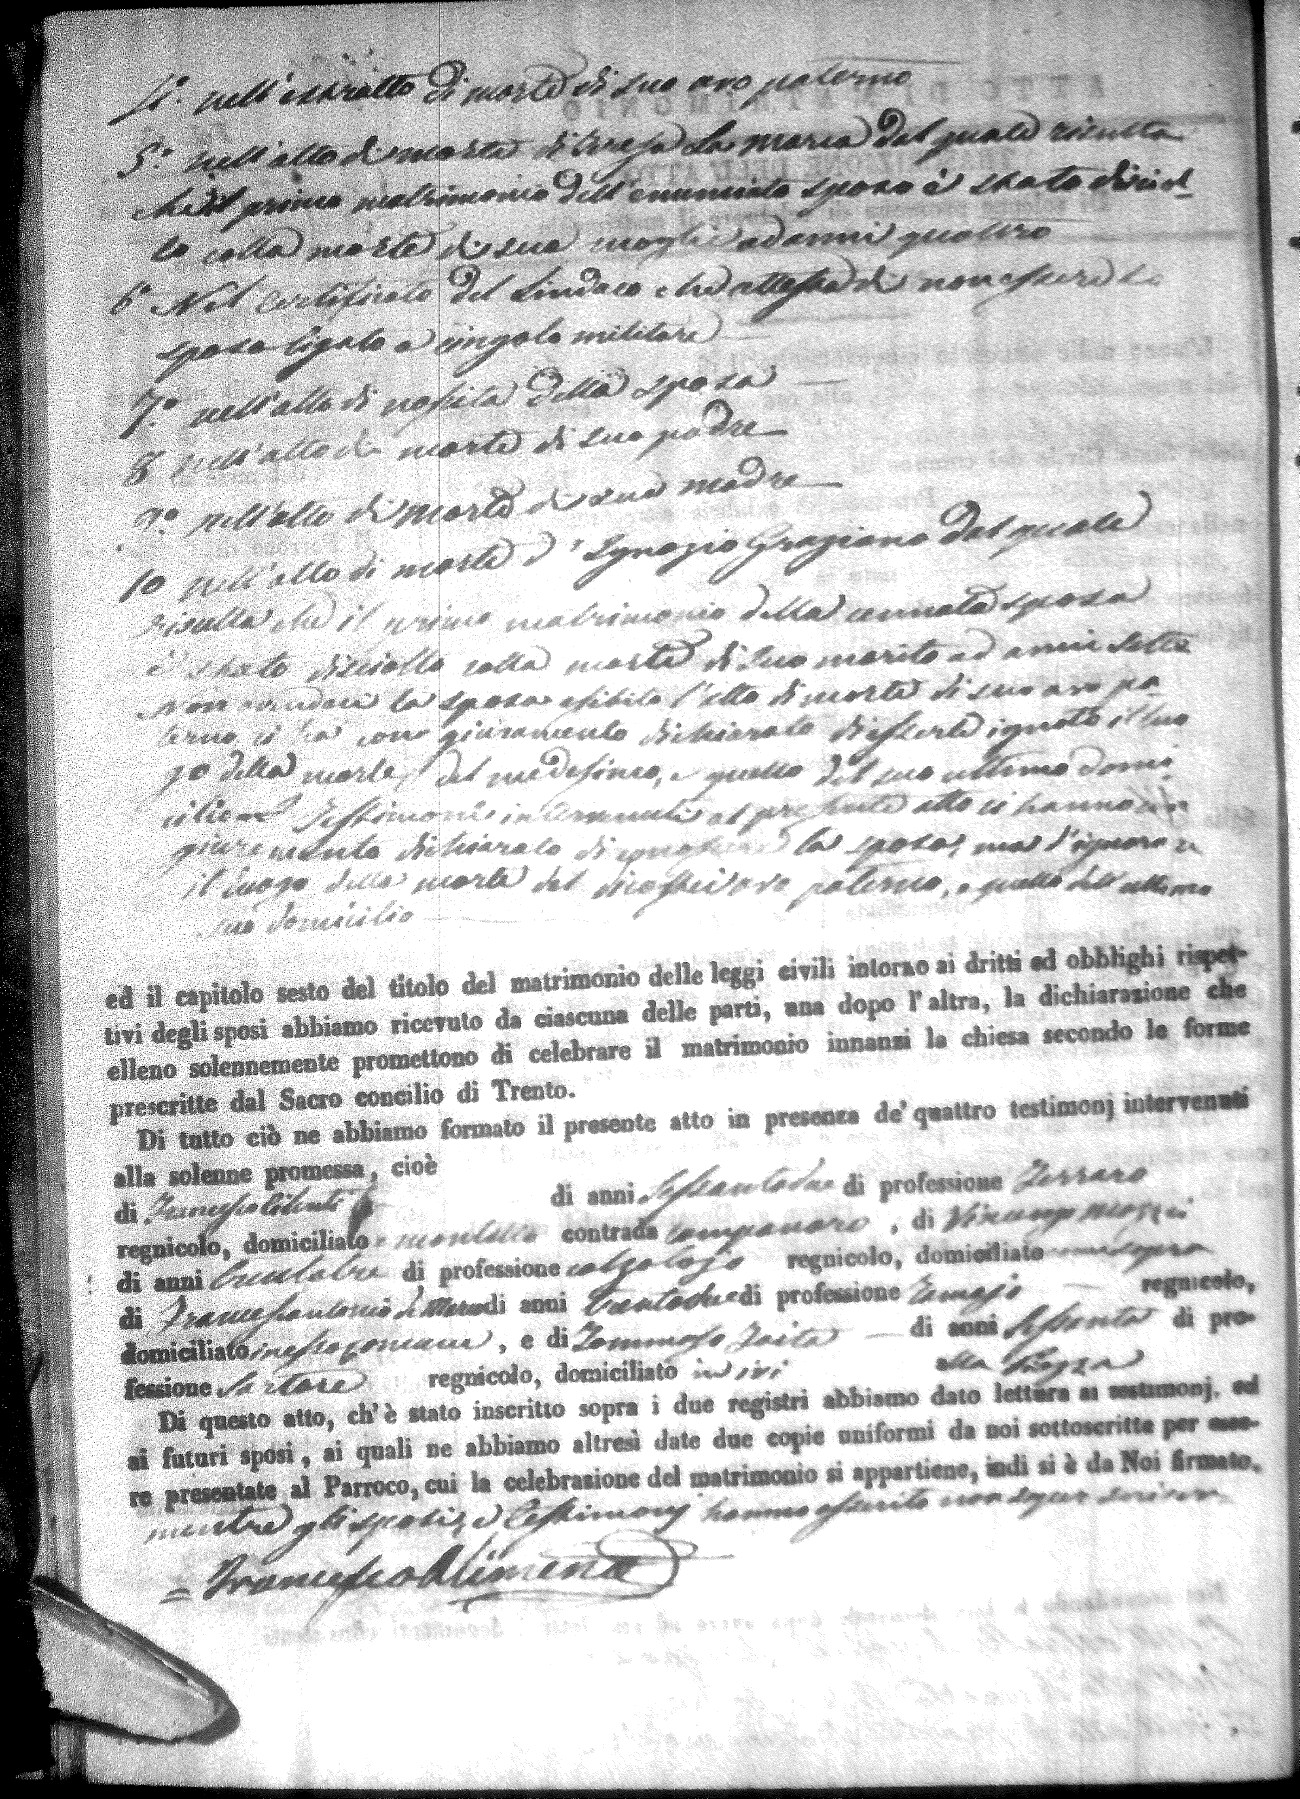 4°. nell'estratto di morte di suo avo paterno
5°. nell'atto di morte di Teresa La Maria dal quale risulta
che il primo matrimonio dell'enunciato sposo è stato disciol-
to colla morte di sua moglie ad anni quattro
6° Nel certificato del Sindaco che attesta di non essere lo
sposo ligato a cingolo militare
7°. nell'atto di nascita della sposa
8 nell'atto di morte di suo padre
9° nell'atto di morte di sua madre
10 nell'atto di morte d'Ignazio Graziano dal quale
risulta che il primo matrimonio della cennata sposa
è stato disciolto colla morte di suo marito ad anni sette
Non la sposa esibito l'atto di morte di suo avo pa-
terno ci ha con giuramento dichiarato di esserle ignoto il luo
go della morte del medesimo, e quello del suo ultimo domi
cilio Testimoni intervenuti al presente atto ci hanno con
giuramento dichiarato di la sposa, ma d'ignorare
il luogo della morte del avo paterno, e quello dell'ultimo
suo domicilio
ed il capitolo sesto del titolo del matrimonio delle leggi civili intorno ai dritti ed obblighi rispet-
tivi degli sposi abbiamo ricevuto da ciascuna delle parti, una dopo l'altra, la dichiarazione che
elleno solennemente promettono di celebrare il matrimonio innanzi la chiesa secondo le forme
prescritte dal Sacro concilio di Trento.
Di tutto ciò ne abbiamo formato il presente atto in presenza de' quattro testimonj intervenuti
alla solenne promessa, cioè
di Francesco di anni Sessantadue di professione Ferraro
regnicolo, domiciliato contrada campanaro, di
di anni di professione calzolajo regnicolo, domiciliato come sopra
di Francescantonio di anni trentadue di professione regnicolo,
domiciliato, e di Tommaso di anni Sessanta di pro-
fessione Sartore regnicolo, domiciliato in ivi alla
Di questo atto, ch'è stato inscritto sopra i due registri abbiamo dato lettura ai testimonj, ed
ai futuri sposi, ai quali ne abbiamo altresì date due copie uniformi da noi sottoscritte per esse-
re presentate al Parroco, cui la celebrazione del matrimonio si appartiene, indi si è da Noi firmato,
mentre gli sposi, e testimonj hanno asserito non saper scrivere
= Francesco Alimena